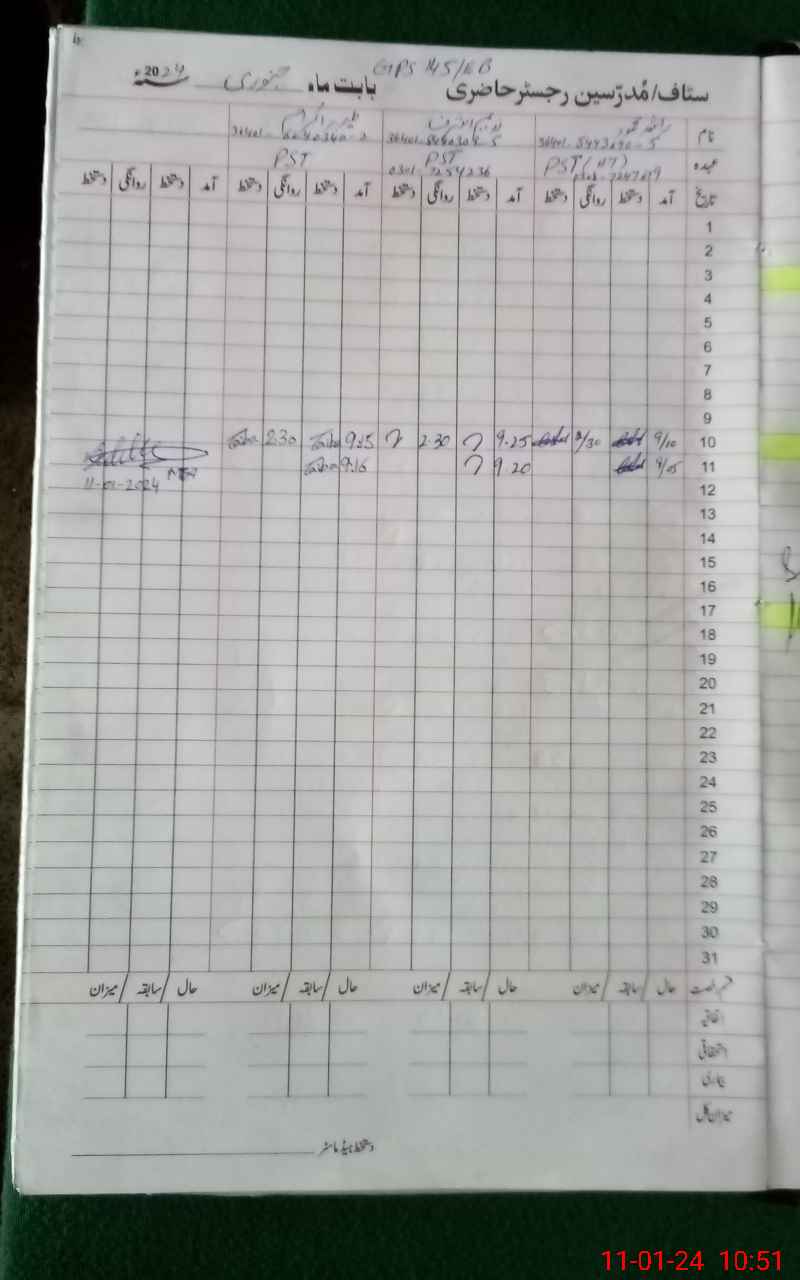 GPS 145/EB
سٹاف/مُدرّسین رجسٹر حاضری بابت ماہ جنوری 2024ء
نام
36401-5443690-5
36401-5460304-5
عہدہ PST (HT) PST PST
0301-7254236
تاریخ آمد دستخط روانگی دستخط آمد دستخط روانگی دستخط آمد دستخط روانگی دستخط آمد دستخط روانگی دستخط
1
2
3
4
5
6
7
8
9
10 9/10 3/30 9.25 2.30 9:15 2:30
11 9/05 9.20 9:16
11-01-2024
12
13
14
15
16
17
18
19
20
21
22
23
24
25
26
27
28
29
30
31
قسم رخصت حال / سابقہ / میزان حال / سابقہ / میزان حال / سابقہ / میزان حال / سابقہ / میزان
اتفاقیہ
استحقاقی
بیماری
میزان کل
دستخط ہیڈ ماسٹر
11-01-24 10:51